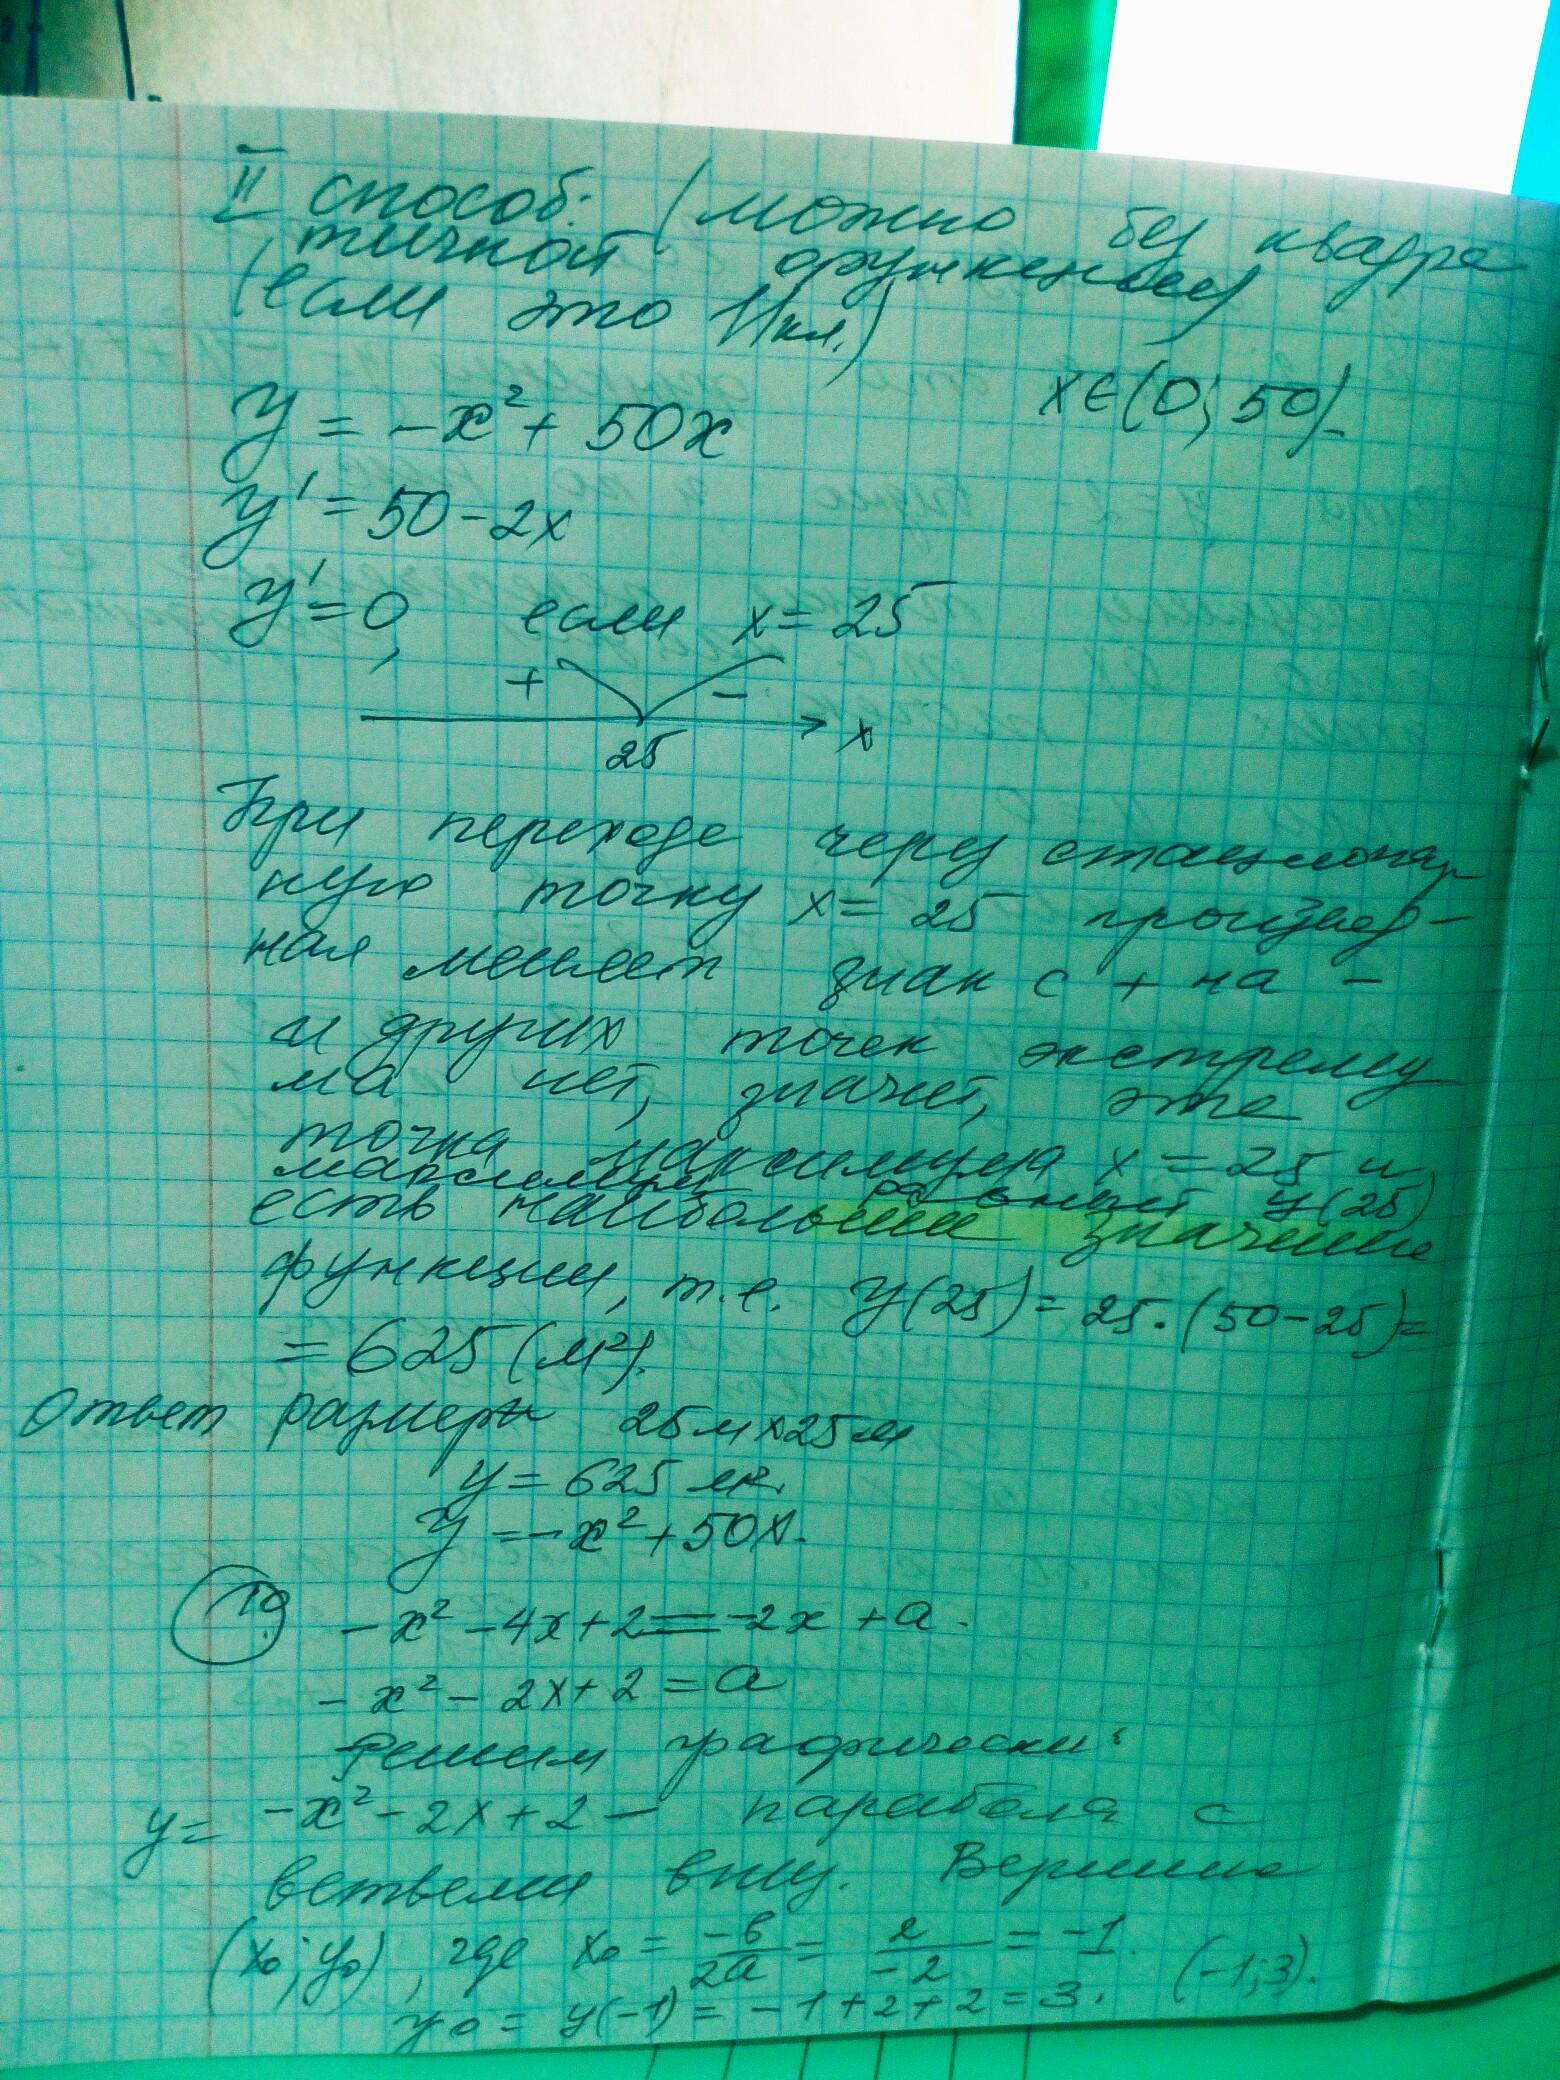 II способ: (можно без квадра
тичной функции)
(если это 11 кл.)
x∈(0; 50)
y = -x² + 50x
y' = 50 - 2x
y' = 0, если x = 25
+ -
25 x
При переходе через стационар
ную точку x = 25 производ-
ная меняет знак с + на -
и других точек экстрему
ма нет, значит, это
точка максимума x = 25 и
максимум равный y(25)
есть наибольшее значение
функции, т.е. y(25) = 25·(50-25)=
= 625 (м²).
Ответ размеры 25м×25м
y = 625 м².
y = -x² + 50x.
19 -x² - 4x + 2 = -2x + a.
-x² - 2x + 2 = a
Решим графически:
y = -x² - 2x + 2 - парабола с
ветвями вниз. Вершина
(x₀; y₀), где x₀ = -b/2a = 2/-2 = -1.
y₀ = y(-1) = -1+2+2 = 3. (-1; 3).